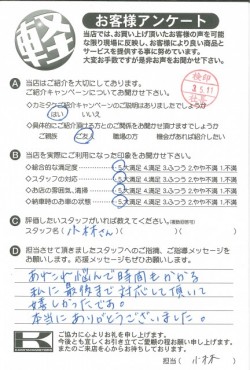 軽
お客様アンケート
当店では、お買い上げ頂いたお客様の声を可能
な限り現場に反映し、お客様により良い商品と
サービスを提供する事に努めています。
大変お手数ですが是非お声をお聞かせ下さい。
検印
3.5.11
A 当店はご紹介を大切にしております。
ご紹介キャンペーンについてお聞かせ下さい。
◇カミタケご紹介キャンペーンのご説明はありましたでしょうか
はい いいえ
ご親族 ご友人 職場の方 機会があれば紹介したい
B 当店を実際にご利用になった印象をお聞かせ下さい。
◇総合的な満足度 5.大満足 4.満足 3.ふつう 2.やや不満 1.不満
◇スタッフの対応 5.大満足 4.満足 3.ふつう 2.やや不満 1.不満
◇お店の雰囲気、清掃 5.大満足 4.満足 3.ふつう 2.やや不満 1.不満
◇納車時のお車の状態 5.大満足 4.満足 3.ふつう 2.やや不満 1.不満
C 評価したいスタッフがいれば教えてください。(複数回答可)
スタッフ名( 小林さん )
D 担当させて頂きましたスタッフへのご指摘、ご指導メッセージを
お願いします。応援メッセージもぜひお願いします。
悩んで時間をかかる
私に最後まで対応して頂いて
嬉しかったです。
本当にありがとうございました。
K
ご協力に心よりお礼を申し上げます。
今後とも宜しくお引き立てご愛顧の程お願い申し上げます。
またのご来店を心からお待ちしております。
担当( 小林 )